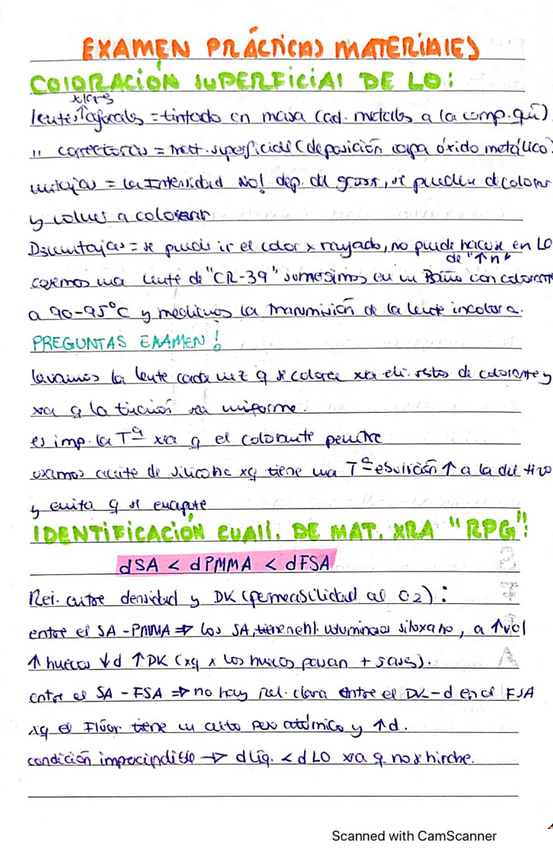 EXAMEN PRÁCTICAS MATERIALES
COLORACIÓN SUPERFICIAL DE LO:
lentes afocales = tintado en masa (ad. metales a la comp. quí)
" correctoras = tratt. superficial (deposición capa óxido metálico)
ventajas = la Intensidad No! dep. del grosor, se pueden decolorar
y volver a colorear
Desventajas = se puede ir el color x rayado, no puede hacerse en LO
de "↑n"
cogemos una lente de "CR-39" sumergimos en un Baño con colorante
a 90-95°C y medimos la transmisión de la lente incolora.
PREGUNTAS EXAMEN!
lavamos la lente cada vez q se colorea xra eli. restos de colorante y
xra q la tinción sea uniforme.
es imp. la Tª xra q el colorante penetre
usamos aceite de silicona xq tiene una Tª ebullición ↑ a la del H2O
y evita q se evapore
IDENTIFICACIÓN CUALI. DE MAT. XRA "RPG"!
dSA < dPMMA < dFSA
Rel. entre densidad y DK (permeabilidad al O2):
entre el SA-PMMA ⇒ los SA, tienen el voluminoso siloxano, a ↑vol
↑ huecos ↓d ↑DK (xq x los huecos pasan + gases).
entre el SA-FSA ⇒ no hay rel. clara entre el DK-d en el FSA
xq el Flúor tiene un alto peso atómico y ↑d.
condición imprescindible → d líq. < d LO xra q no x hinche.
Scanned with CamScanner